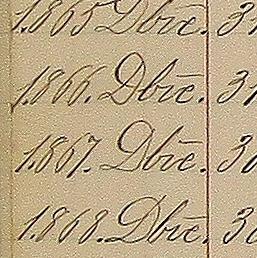 1865 Dbre. 31
1866. Dbre. 31
1867. Dbre. 30
1868. Dbre. 30